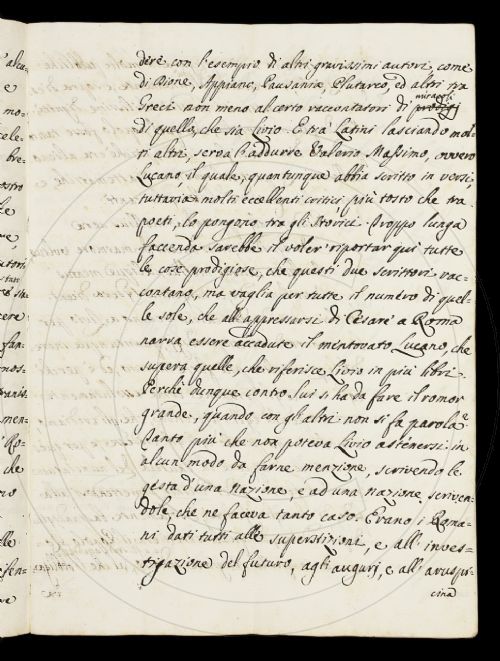 dere con l'esempio di altri gravissimi autori, come
di Dione, Appiano, Pausania, Plutarco, ed altri tra
miracoli
Greci non meno al certo raccontatori di prodigj
di quello, che sia Livio. E tra Latini lasciando mol=
ti altri, serva l'addurre Valerio Massimo, ovvero
Lucano, il quale, quantunque abbia scritto in versi,
tuttavia molti eccellenti critici più tosto che tra
poeti, lo pongono tra gli Storici. Troppo lunga
faccenda sarebbe il voler riportar qui tutte
le cose prodigiose, che questi due scrittori rac=
contano, ma vaglia per tutte il numero di quel=
le sole, che all'appressarsi di Cesare a Roma
narra essere accadute il mentovato Lucano, che
supera quelle, che riferisce Livio in più libri.
Perchè dunque contro lui s'ha da fare il romor
grande, quando con gli altri non si fa parola?
Tanto più che non poteva Livio astenersi in
alcun modo da farne menzione, scrivendo le
gesta d'una nazione, e ad una nazione scriven=
dole, che ne faceva tanto caso. Erano i Roma=
ni dati tutti alle superstizioni, e all'inves=
tigazione del futuro, agli augurj, e all'aruspi=
cina